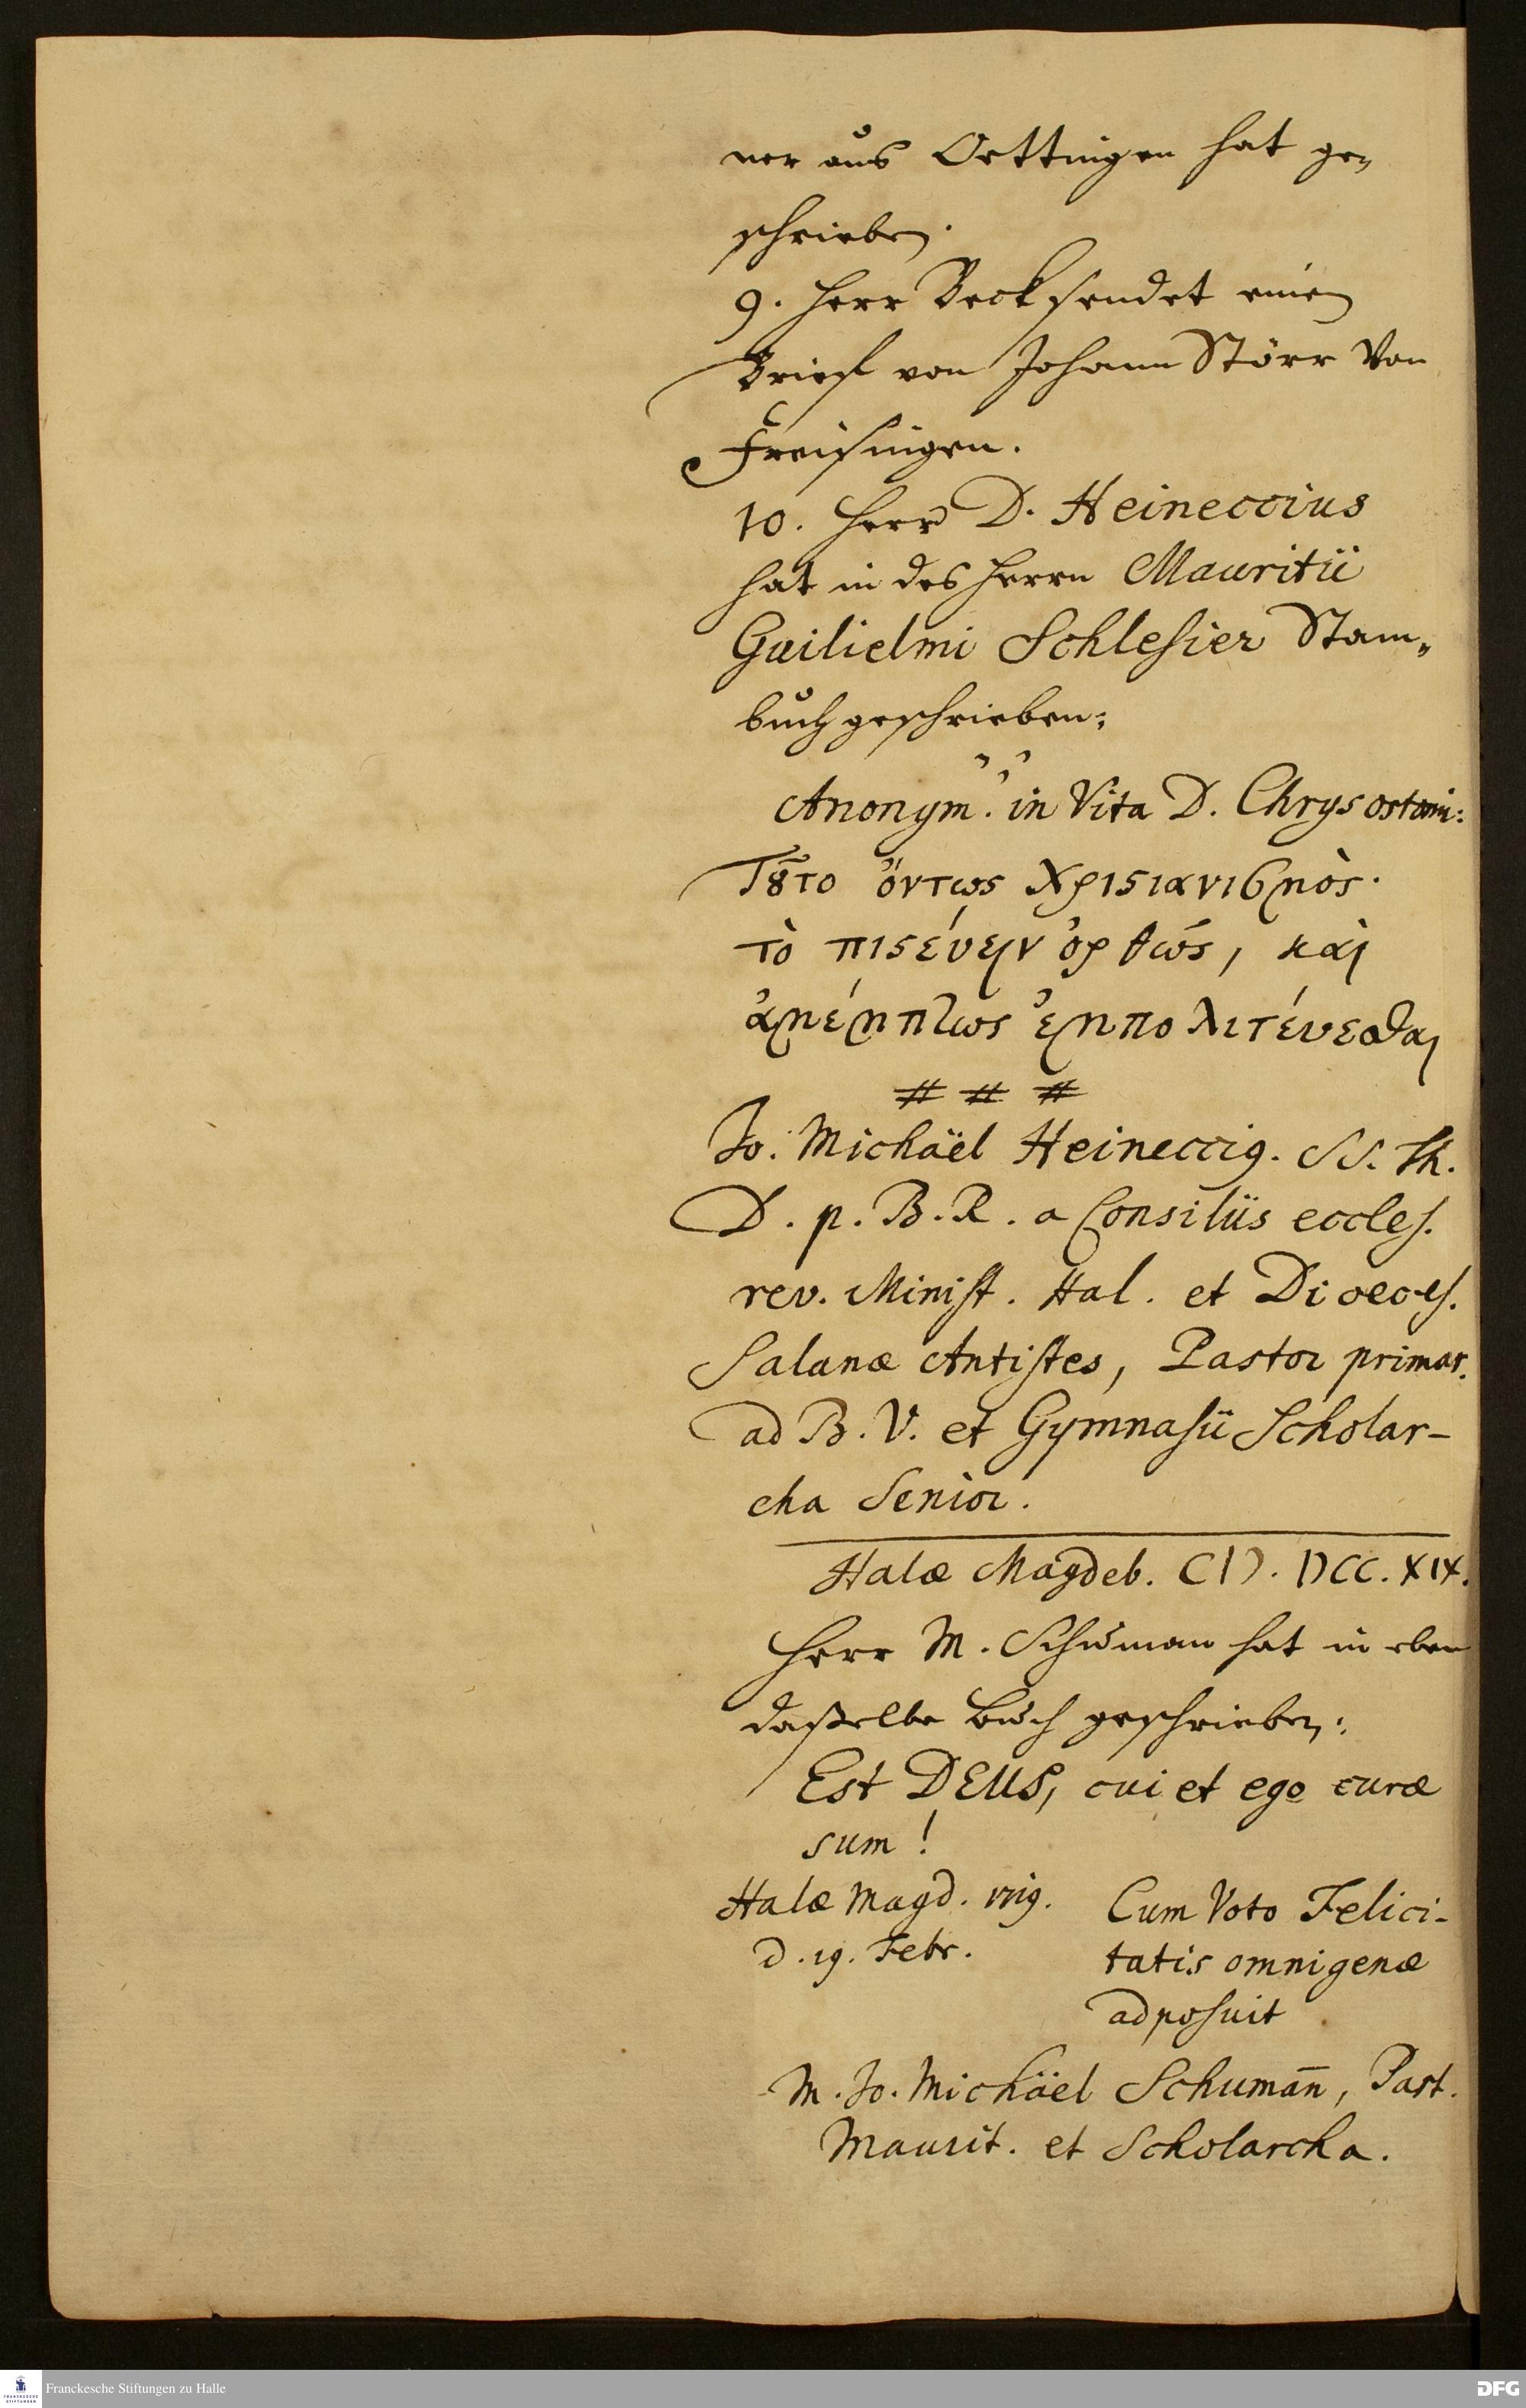 ner aus Oettingen hat ge-
schrieben.
9. Herr Beck sendet einen
Brief von Johann Störr von
Freisingen.
10. Herr D. Heineccius
hat in des Herrn Mauritii
Guilielmi Schlesier Stam-
buch geschrieben:
Anonym. in Vita D. Chrysostomi:
Τȣ͂το ὄντως χριϛιανισμὸς·
τὸ πιϛέυειν ὀρθῶς, καὶ
ἀμέμπτως ἐμπολιτέυεσθαι
# # #
Jo. Michäel Heineccig. SS. Th.
D. p. B. R. a Consiliis eccles.
rev. Minist. Hal. et Dioeces.
Salanæ Antistes, Pastor primar.
ad B. V. et Gymnasii Scholar-
cha Senior.
Halæ Magdeb. CIↃ. IↃCC. XIX.
Herr M. Schuman hat in eben
daßelbe Buch geschrieben:
Est DEUS, cui et ego curæ
sum!
Halæ Magd.
d. 19. Febr.
Cum Voto Felici-
tatis omnigenæ
adposuit
M. Jo. Michäel Schuman̄, Past.
Maurit. et Scholarcha.
FRANCKESCHE STIFTUNGEN
Franckesche Stiftungen zu Halle
DFG